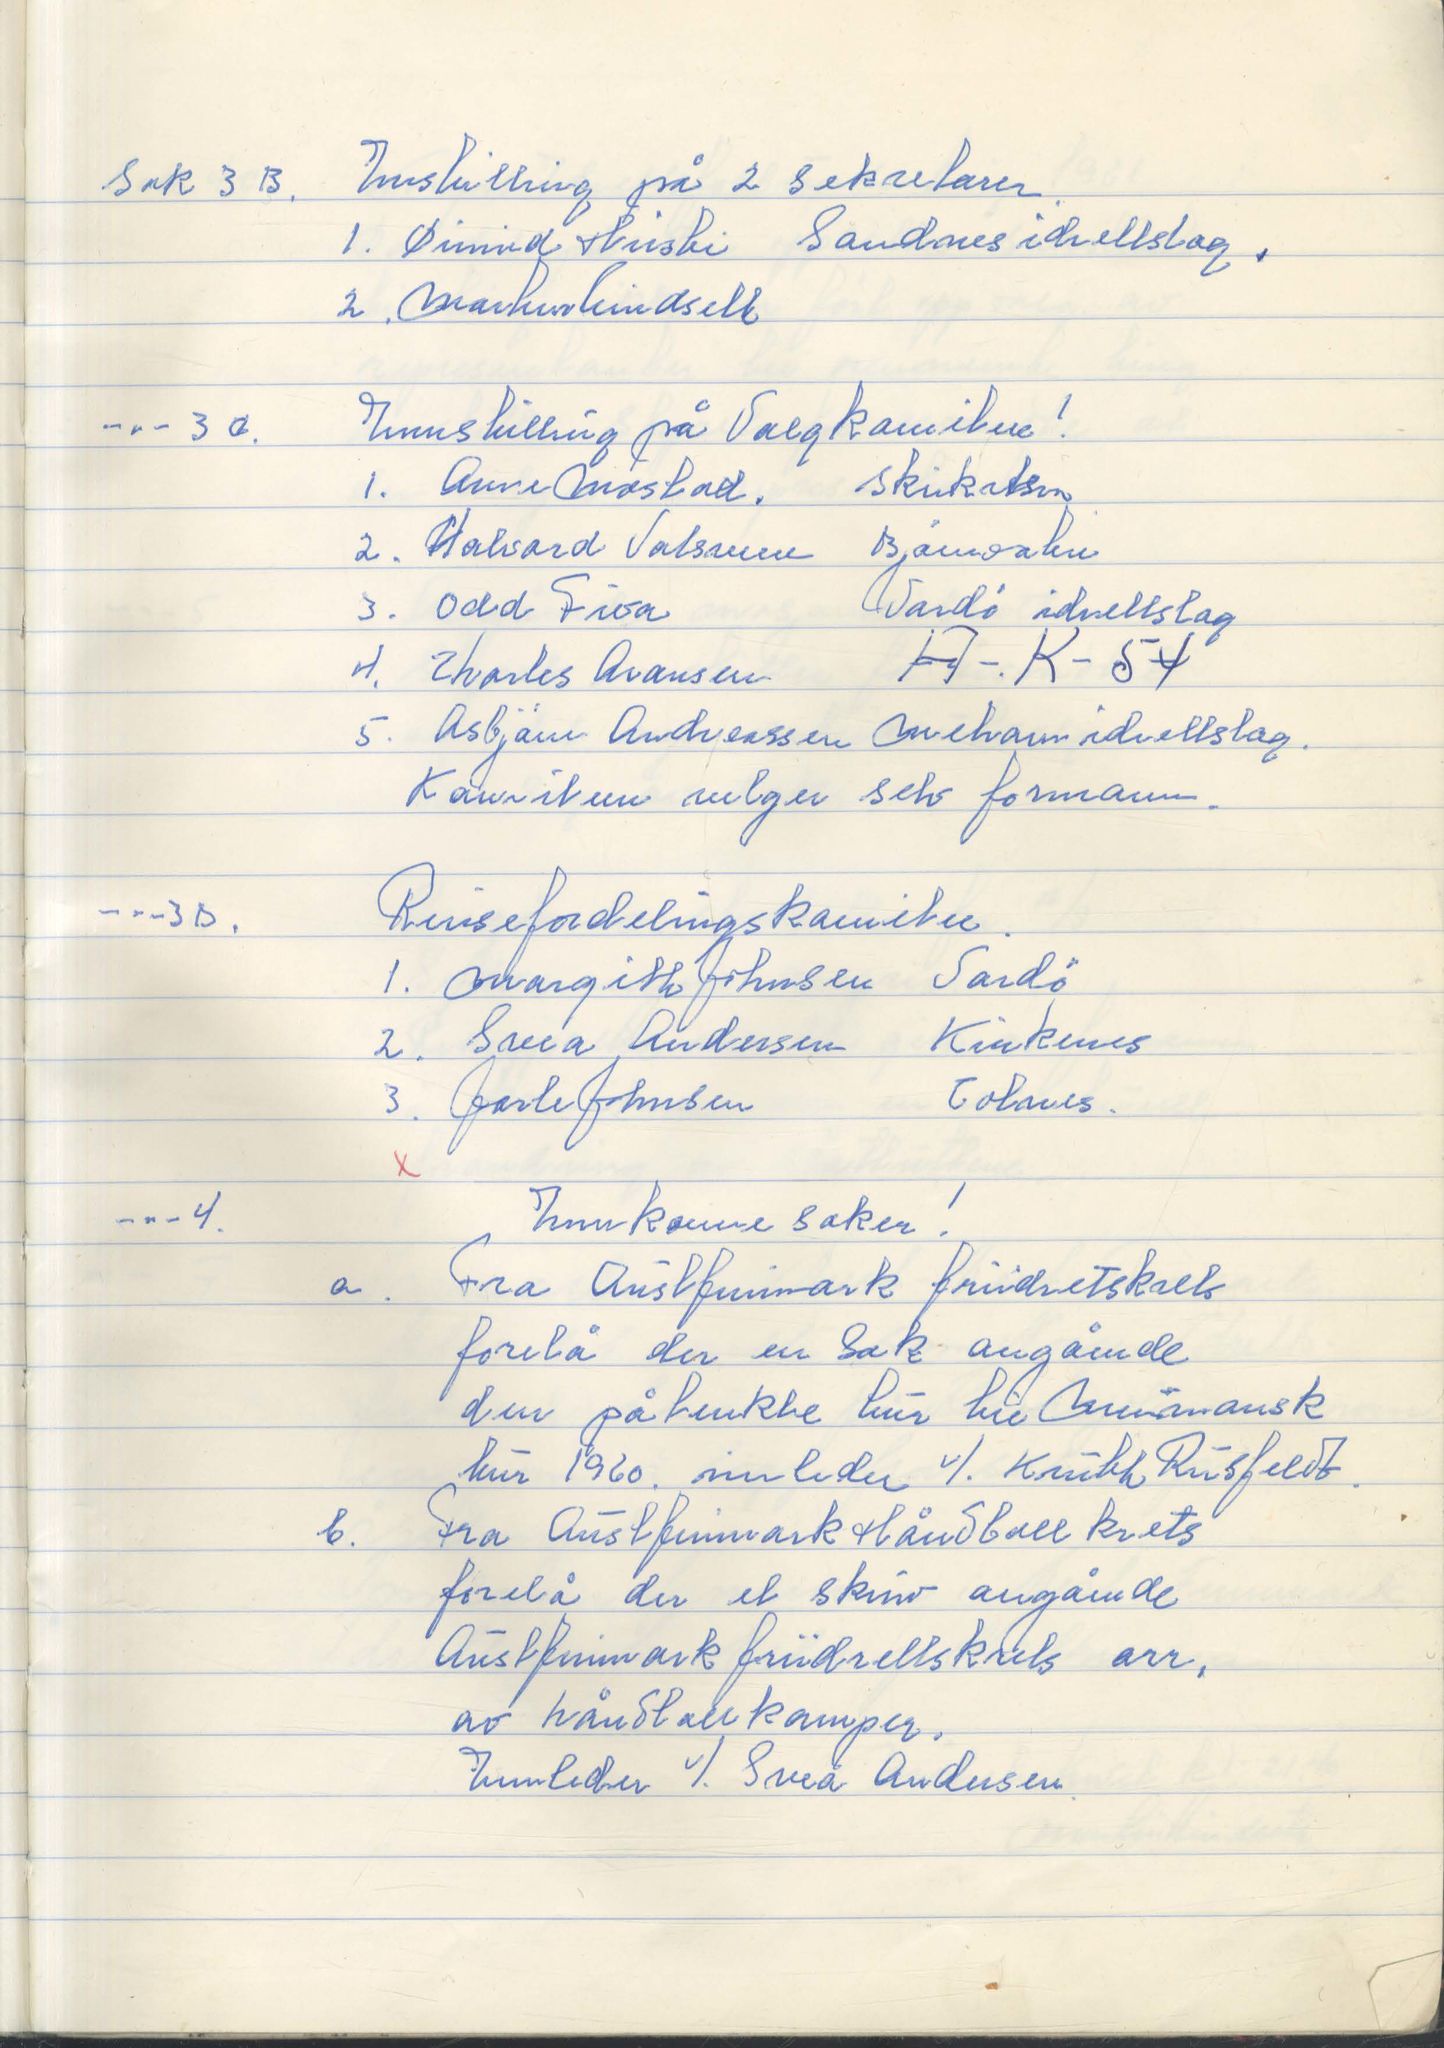 Sak 3 B. Innstilling på 2 sekretærer.
1. Øivind Huski Sandnes idrettslag.
2. Markus Lindseth
-"- 3 C. Innstilling på Valgkomiteen!
1. Arne Mostad. Skiskytter
2. Halvard Valsvein Bjørnevatn
3. Odd Fiva Vardö idrettslag
4. Charles Aransen H-.K-54
5. Asbjörn Andreassen Mehamn idrettslag.
Komiteen velger selv formann.
-"- 3 D. Reisefordelingskomiteen.
1. Margith Johnsen Vardö
2. Svea Andersen Kirkenes
3. Jarle Johnsen Tolnes.
x
-"- 4. Innkomne saker!
a. Fra Austfinnmark friidretskrets
forelå der en Sak angående
den påtenkte tur til Murmansk
tur 1960. innleder v/. Knuth Rusfeldt.
b. Fra Austfinnmark Håndball krets
forelå der et skriv angående
Austfinnmark friidrettskrets arr.
av håndballkamper.
Innleder v/. Svea Andersen.